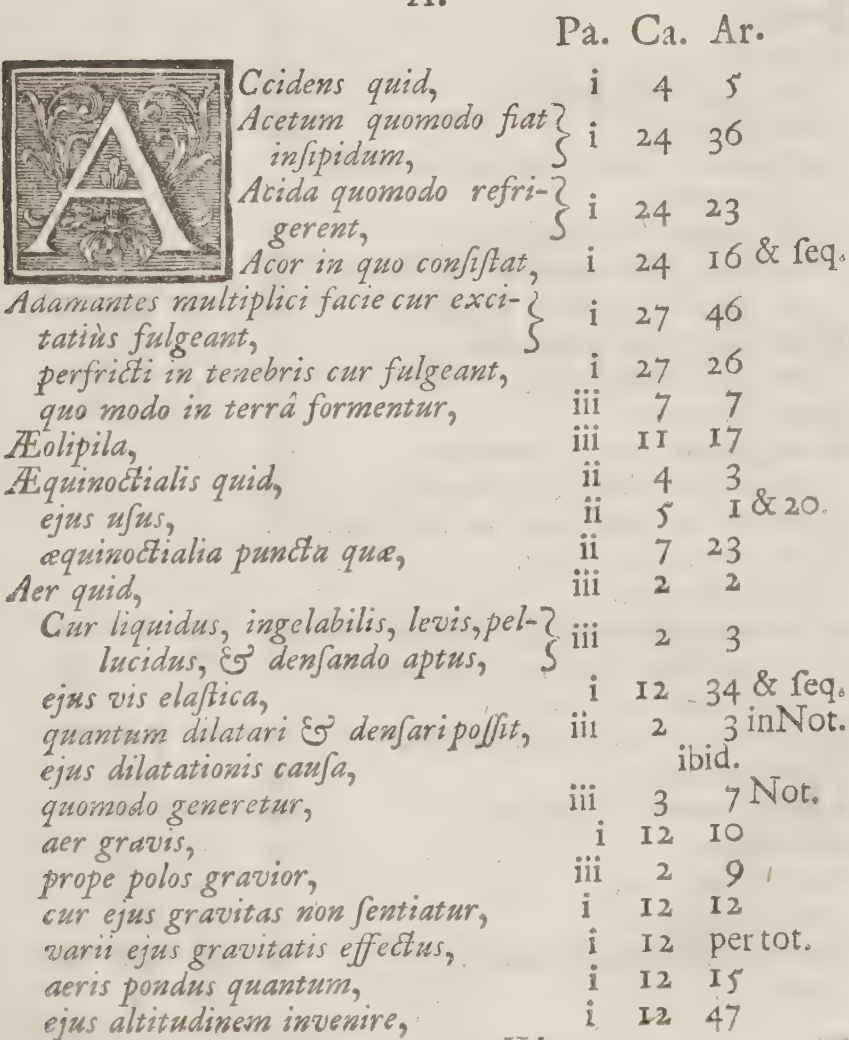 A.
Pa. Ca. Ar.
ACcidens quid, i 4 5
Acetum quomodo fiat
inſipidum, } i 24 36
Acida quomodo refri-
gerent, } i 24 23
Acor in quo conſiſtat, i 24 16 & ſeq.
Adamantes multiplici facie cur exci-
tatiùs fulgeant, } i 27 46
perfricti in tenebris cur fulgeant, i 27 26
quo modo in terrâ formentur, iii 7 7
Æolipila, iii 11 17
Æquinoctialis quid, ii 4 3
ejus uſus, ii 5 1 & 20.
æquinoctialia puncta quæ, ii 7 23
Aer quid, iii 2 2
Cur liquidus, ingelabilis, levis, pel-
lucidus, & denſando aptus, } iii 2 3
ejus vis elaſtica, i 12 34 & ſeq.
quantum dilatari & denſari poſſit, iii 2 3 in Not.
ejus dilatationis cauſa, ibid.
quomodo generetur, iii 3 7 Not.
aer gravis, i 12 10
prope polos gravior, iii 2 9
cur ejus gravitas non ſentiatur, i 12 12
varii ejus gravitatis effectus, i 12 per tot.
aeris pondus quantum, i 12 15
ejus altitudinem invenire, i 12 47